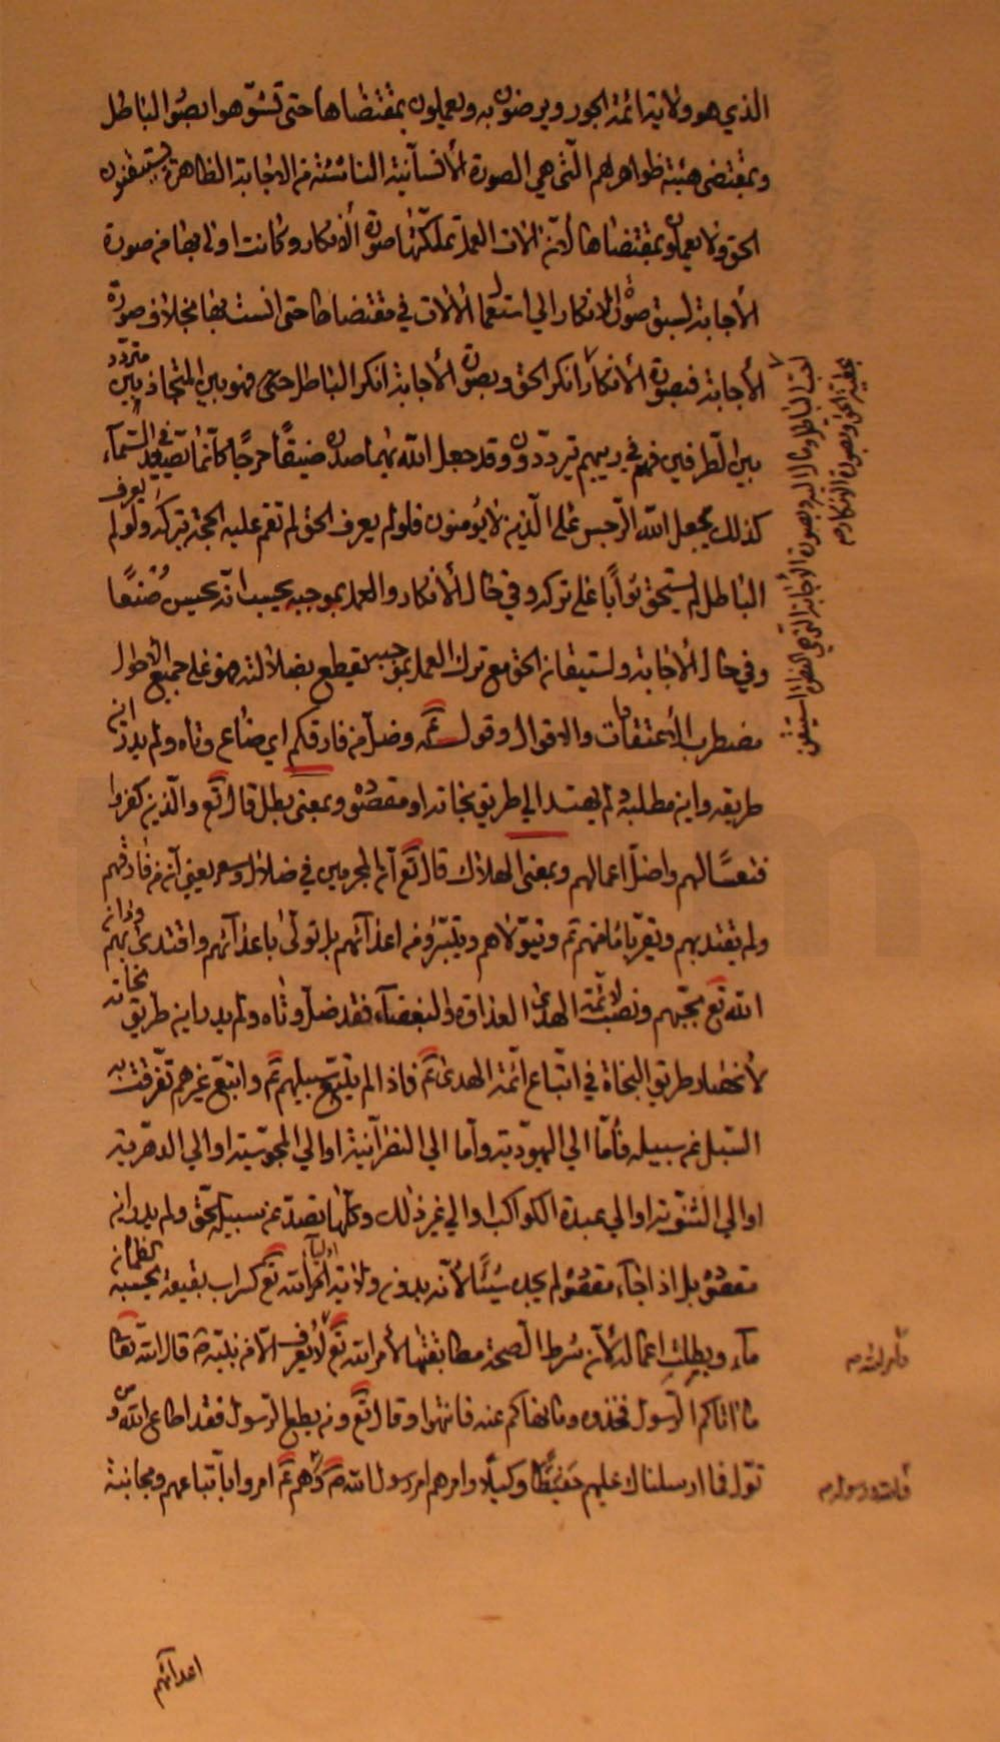 الذي هو ولاية ائمة الجور ويرضون به ويعملون بمقتضاها حتى تشوّهوا بصور الباطل
وبمقتضى هيئة ظواهرهم الّتي هي الصورة الأنسانية الناشئة من الاجابة الظاهرة يستيقنون
الحق ولا يعملون بمقتضاها لأنّ الات العمل تملكتها صورة الأنكار وكانت اولى بها من صورة
الأجابة لسبق صورة الانكار الى استعمال الألات في مقتضاها حتى انست بها بخلاف صورة
الأجابة فبصورة الأنكار انكر الحق وبصورة الأجابة انكر الباطل فهو بين المتجاذبين متردّد
بين الطرفين فهم في ريبهم يتردّدون وقد جعل الله بهما صدره ضيقًا حرجًا كأنّما يصّعّد في السّمآء
كذلك يجعل الله الرّجس على الّذين لا يؤمنون فلو لم يعرف الحق لم تقم عليه الحجة بتركه ولو لم يعرف
الباطل لم يستحق ثوابًا على تركه وفي حال الأنكار والعمل بموجبه يحسب انّه يحسن صُنعًا
وفي حال الأجابة واستيقان الحق مع ترك العمل بموجبه يقطع بضلالته فهو على جميع الأحوال
مضطرب الأعتقادات والاقوال وقوله ع وضلّ من فارقكم اي ضاع وتاه ولم يدر اين
طريقه واين مطلبه ولم يهتد الى طريق نجاته او مقصده وبمعنى بطل قال تع والّذين كفروا
فتعسًا لهم واضلّ اعمالهم وبمعنى الهلاك قال تع انّ المجرمين في ضلال وسعر يعني انّ من فارقهم
ولم يقتد بهم ويتولاهم ويتبرّء من اعدآئهم بل تولّى باعدآئهم واقتدى بهم
الله تع بحبّهم ونصب لأئمّة الهدى العداوة والبغضآء فقد ضلّ وتاه ولم يدر اين طريق نجاته
لأنحصار طريق النجاة في اتّباع ائمّة الهدى ع فاذا لم يتّبع سبيلهم ع واتبع غيرهم تفرّقت به
السّبل عن سبيله فأمّا الى اليهوديّة وأما الى النصرآنية او الى المجوسيّة او الى الدهرية
او الى الثنويّة او الى عبدة الكواكب او الى غير ذلك وكلّها تصدّ عن سبيل الحق ولم يدر اين
مقصده بل اذا جآء مقصده لم يجده شيئًا لأنّه بدون ولاية اوليآء امر الله تع كسراب بقيعة يحسبه الظمآن
مآء وبطلت اعماله لأنّ شرط الصحة مطابقتها لأمر الله تع ولا يُعرف الّا من نبيّه ص قال الله تعا
ما اتاكم الرّسول فخذوه وما نهاكم عنه فانتهوا وقال تع ومن يطع الرّسول فقد اطاع الله ومن
تولّى فما ارسلناك عليهم حفيظًا وامرهم امر رسول الله ص وهم ع امروا بأتباعهم ومجانبة
اعدآئهم